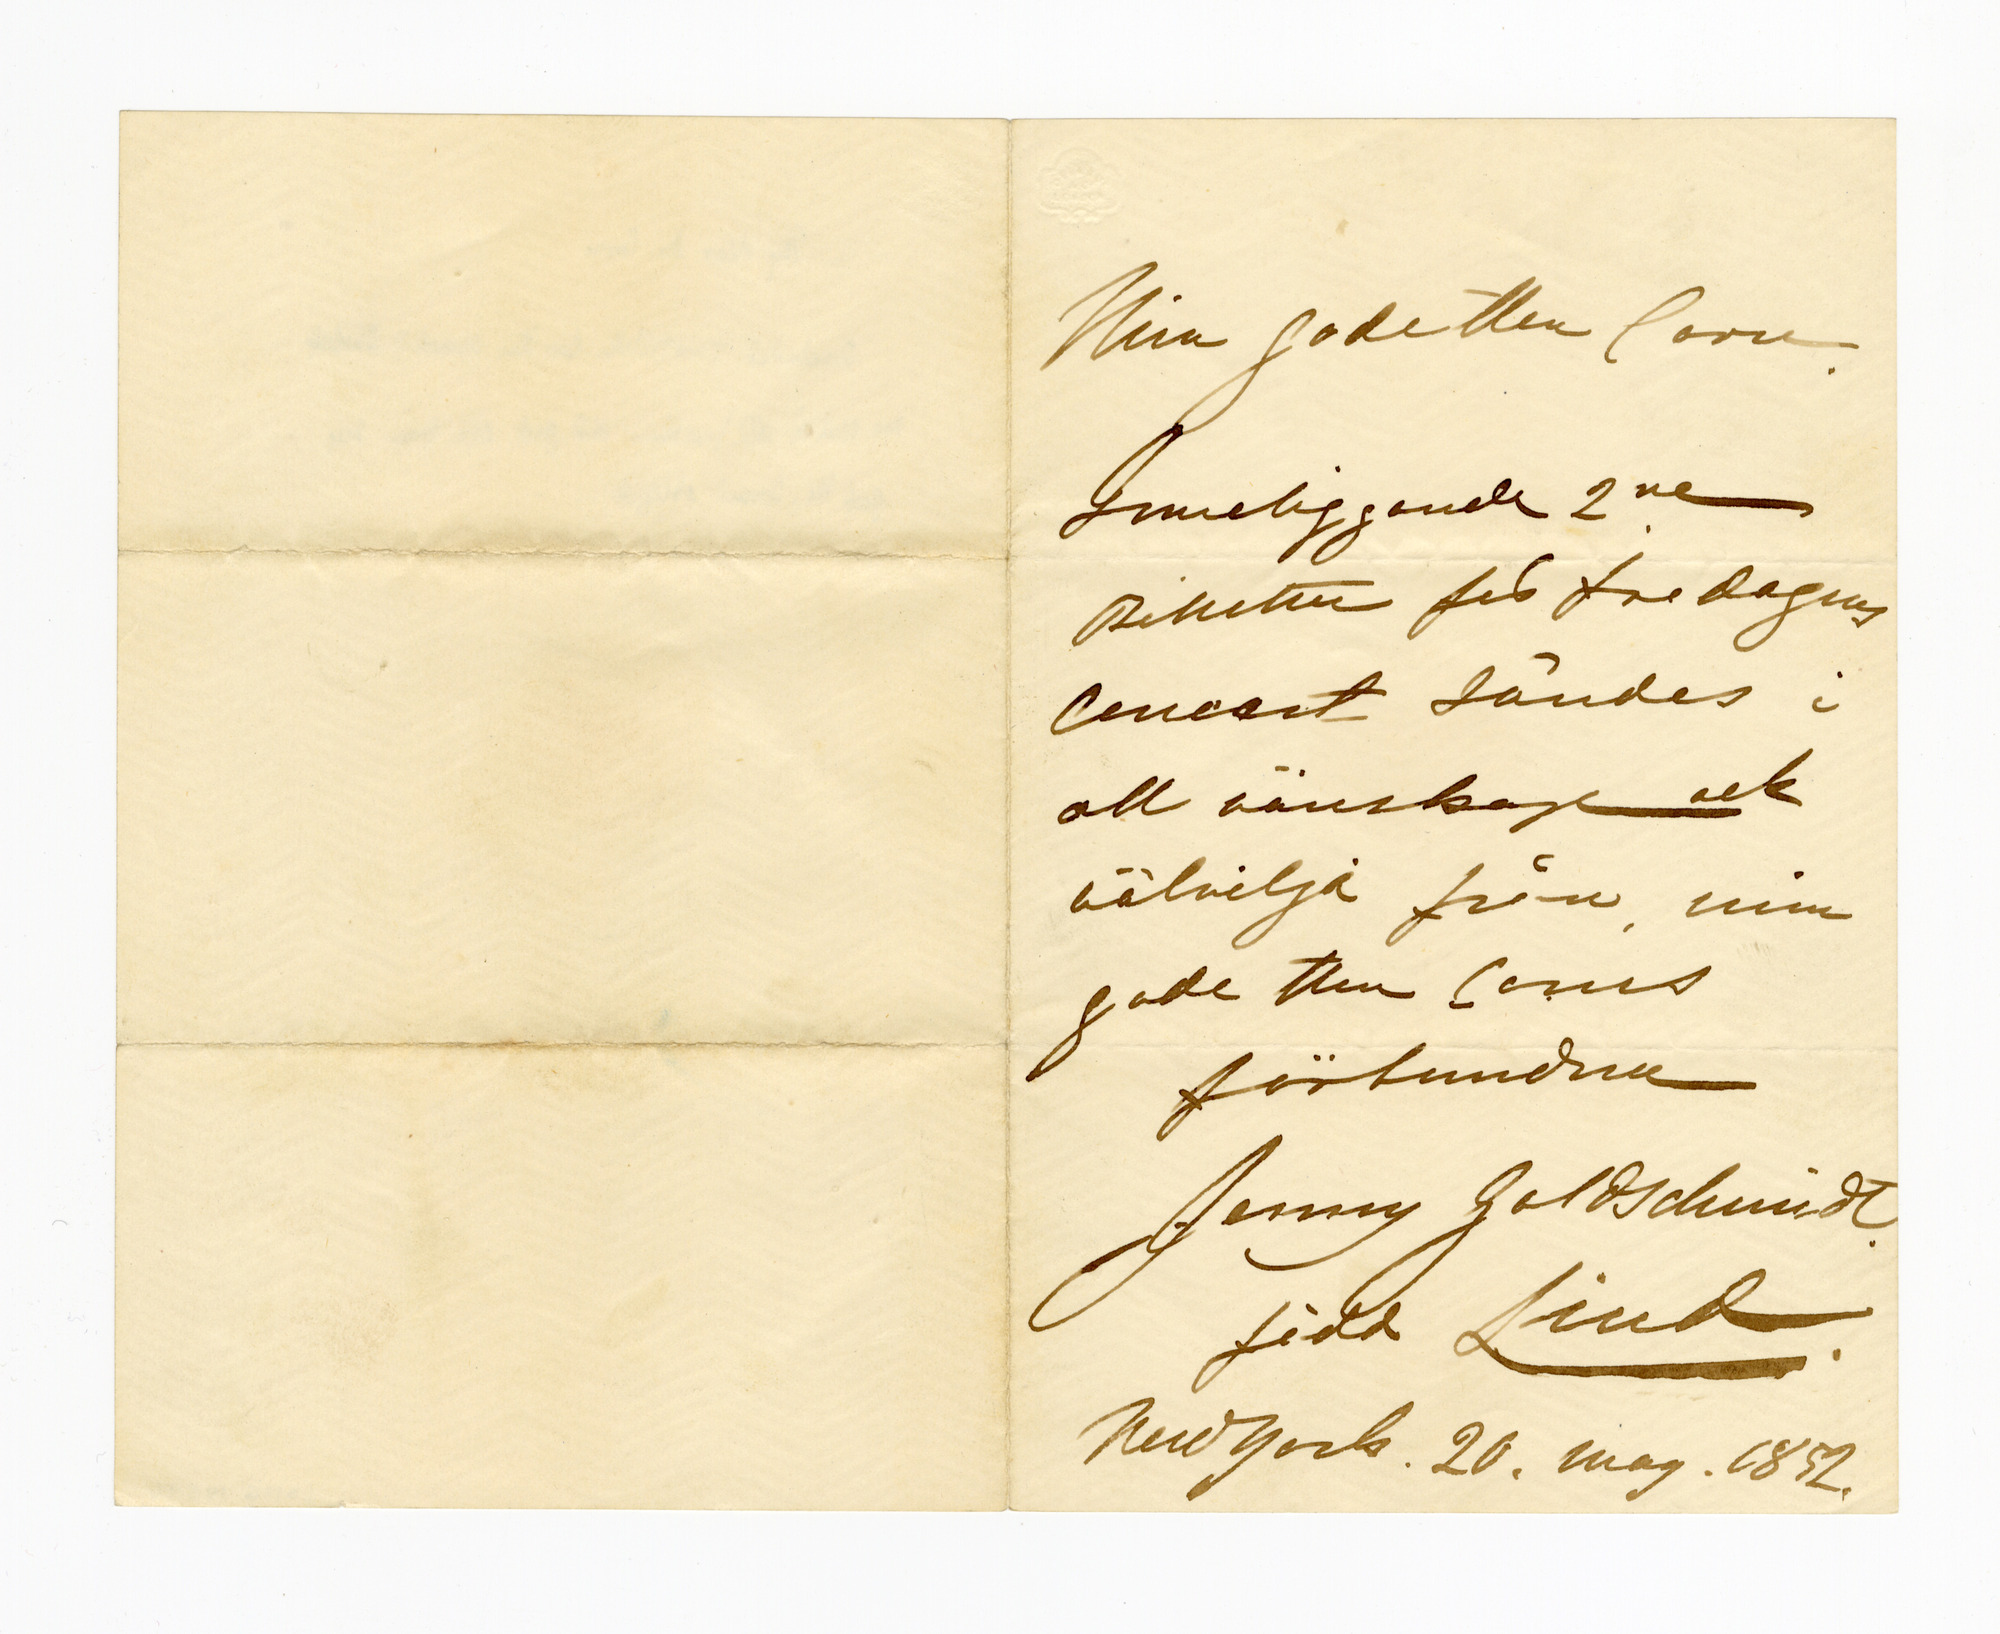 Min gode Herr
Inneliggande 2ne
Billetter för fredagens
Concert sändes i
all vänskap och
välvilja från min
gode Herr
förbundna
Jenny Goldschmidt.
född Lind.
New York. 20. may. 1852.